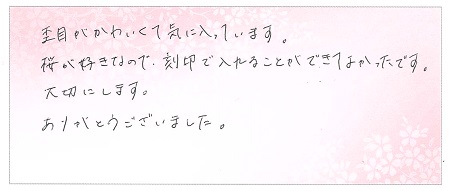 杢目がかわいくて気に入っています。
桜が好きなので、刻印で入れることができてよかったです。
大切にします。
ありがとうございました。